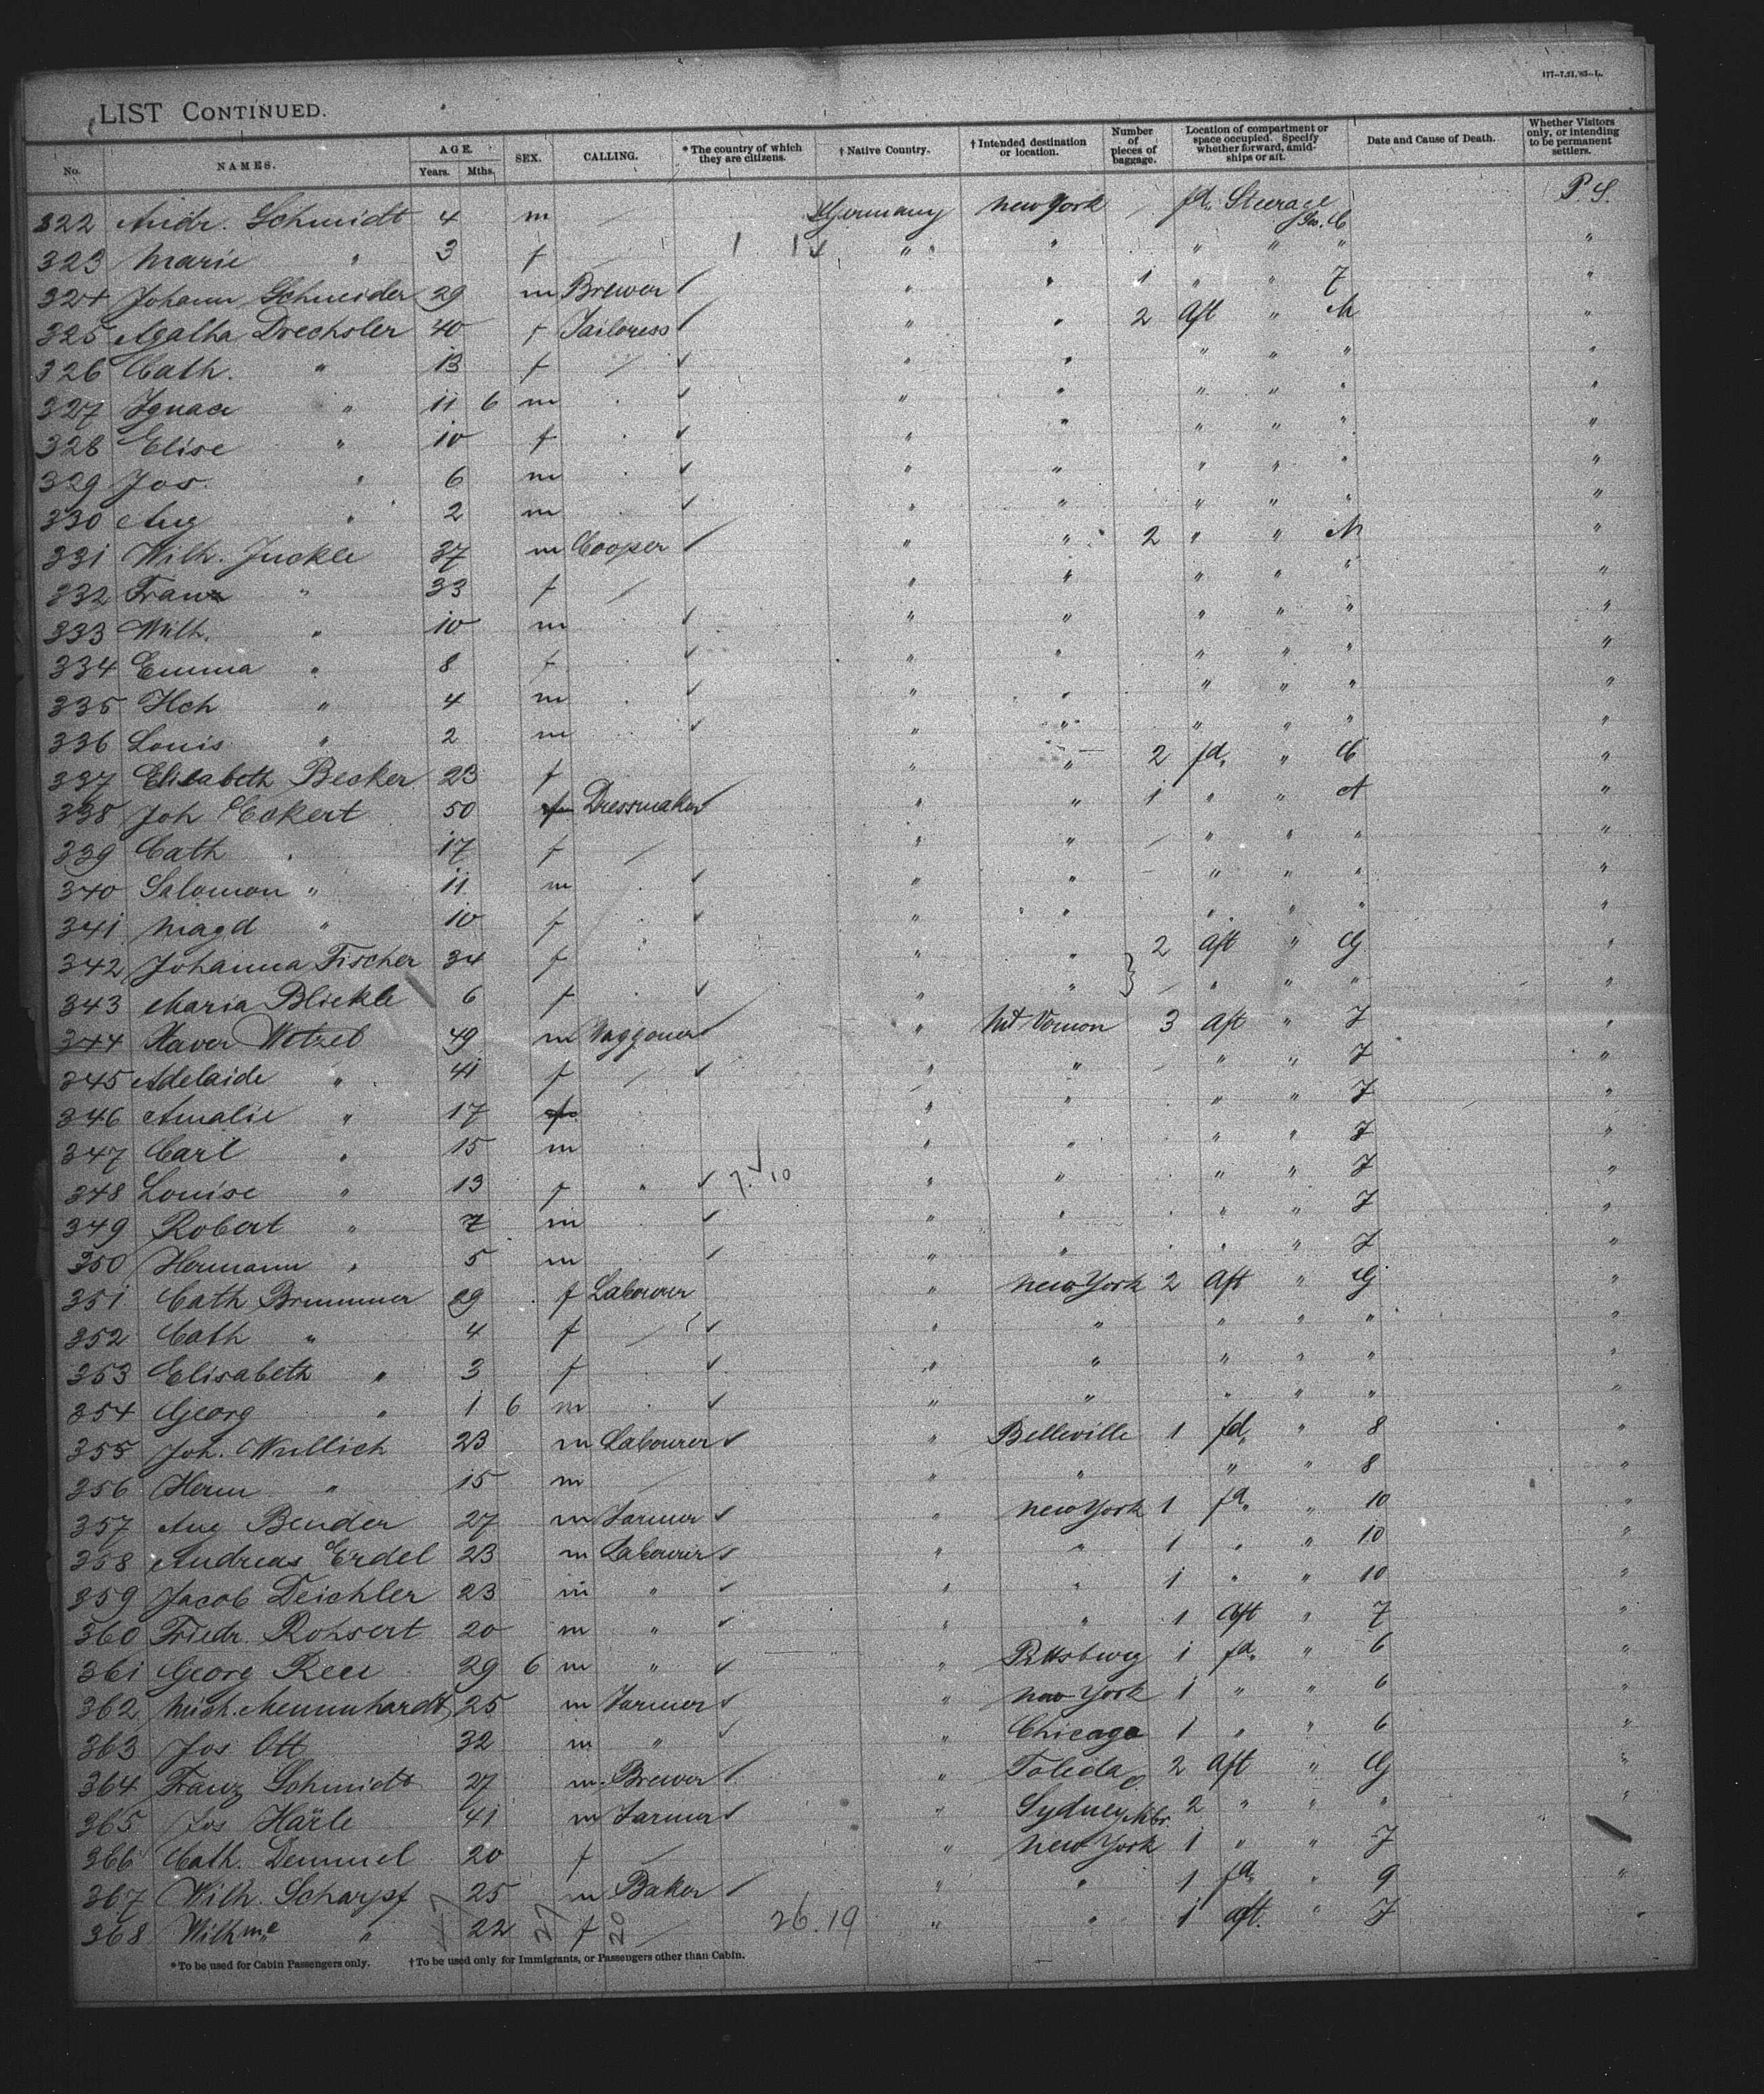 177-7,21,'85-L.
LIST CONTINUED.
No. NAMES. AGE. Years. Mths. SEX. CALLING. * The country of which they are citizens. † Native Country. † Intended destination or location. Number of pieces of baggage. Location of compartment or space occupied. Specify whether forward, amidships or aft. Date and Cause of Death. Whether Visitors only, or intending to be permanent settlers.
322 Andr. Schmidt 4 m / Germany New York / fd. Steerage C P. S.
323 Marie " 3 f / 1 1 " " " " " "
324 Johann Schneider 29 m Brewer " " 1 " " 7 "
325 Agatha Drechsler 40 f Tailoress " " 2 Aft " M "
326 Cath. " 13 f / " " " " " "
327 Ignaci " 11 6 m " " " " " "
328 Elise " 10 f " " " " " "
329 Jos. " 6 m " " " " " "
330 Aug " 2 m " " " " " "
331 Wilh. Juckle 37 m Cooper " " 2 " " M "
332 Franz " 33 f / " " " " " "
333 Wilh. " 10 m " " " " " "
334 Emma " 8 f " " " " " "
335 Hch " 4 m " " " " " "
336 Louis " 2 m " " " " " "
337 Elisabeth Becker 23 f " " 2 fd. " C "
338 Joh Eckert 50 f Dressmaker " " 1 " " A "
339 Cath " 17 f / " " / " " " "
340 Salomon " 11 m " " " " " "
341 Magd " 10 f " " " " " "
342 Johanna Fischer 34 f " " 2 Aft " G "
343 Maria Blickle 6 f " " / " " " "
344 Xaver Wetzel 49 m Waggoner " Mt Vernon 3 Aft " J "
345 Adelaide " 41 f / " " " " J "
346 Amalie " 17 f " " " " J "
347 Carl " 15 m " " " " J "
348 Louise " 13 f " 7. 10 " " " " J "
349 Robert " 7 m " " " " J "
350 Hermann " 5 m " " " " J "
351 Cath Brummer 29 f Labourer " New York 2 Aft " G "
352 Cath " 4 f / " " " " " "
353 Elisabeth " 3 f " " " " " "
354 Georg " 1 6 m " " " " " "
355 Joh. Wullich 23 m Labourer " Belleville 1 fd. " 8 "
356 Herm " 15 m / " " " " 8 "
357 Aug Bender 27 m Farmer " New York 1 fd. " 10 "
358 Andreas Erdel 23 m Labourer " " 1 " " 10 "
359 Jacob Deichler 23 m " " " 1 " " 10 "
360 Friedr. Rohsert 20 m " " " 1 Aft " 7 "
361 Georg 29 6 m " " Pittsburg 1 fd. " 6 "
362 Mich. Mennhardt 25 m Farmer " New York 1 " " 6 "
363 Jos Ott 32 m " " Chicago 1 " " 6 "
364 Franz Schmidt 27 m Brewer " Toleda O. 2 Aft " G "
365 Jos Härle 41 m Farmer " Sydney 2 " " " "
366 Cath. Demmel 20 f / " New York 1 " " J
367 Wilh. Scharpf 25 m Baker " " 1 fd. " 9 "
368 Wilhme " 22 f / 26. 19 " " 1 aft. " J
27 20
* To be used for Cabin Passengers only. † To be used only for Immigrants, or Passengers other than Cabin.